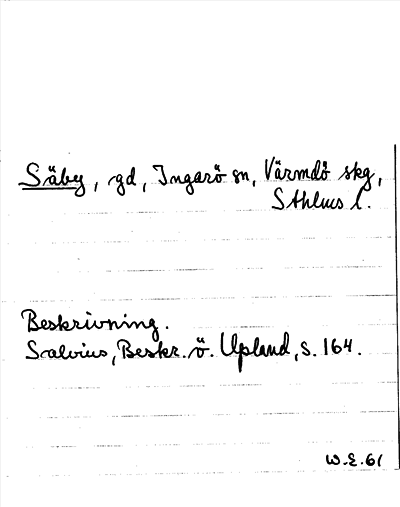 Säby, gd, Ingarö sn, Värmdö skg,
Sthlms l.
Beskrivning.
Salvius, Beskr. ö. Upland, s. 164.
W.E. 61